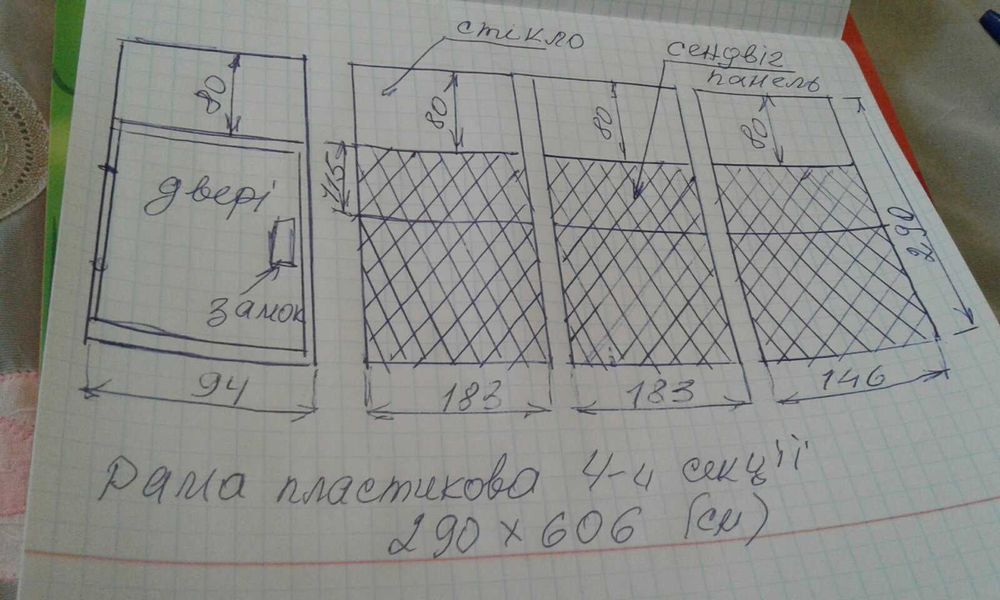 стікло
сендвіг
панель
80
80
80
80
115
двері
замок
290
94
183
183
146
Рама пластикова 4-и секції
290 × 606 (см)